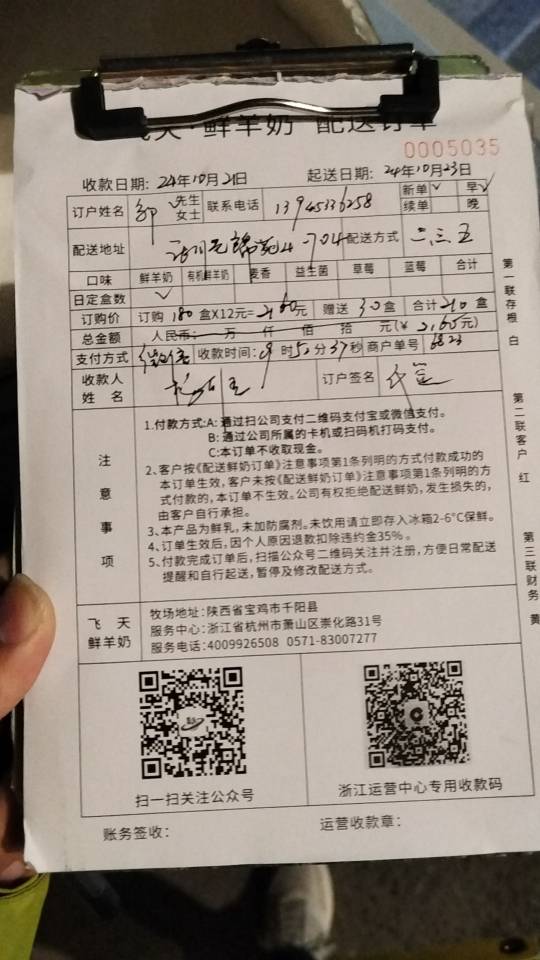 飞天·鲜羊奶 配送订单
0005035
收款日期: 24年10月21日 起送日期: 24年10月23日
订户姓名 邹 先生 女士 联系电话 13945336258 新单 ✓ 早 ✓
续单 晚
配送地址 4-704 配送方式 二三五
口味 鲜羊奶 有机鲜羊奶 麦香 益生菌 草莓 蓝莓 合计
日定盒数 ✓
订购价 订购 180 盒X12元=2160元 赠送 30盒 合计210盒
总金额 人民币: 万 仟 佰 拾 元(¥ 2,160元)
支付方式 微信 收款时间: 9 时52分37秒 商户单号 6823
收款人 姓名 订户签名
注意事项
1.付款方式:A: 通过扫公司支付二维码支付宝或微信支付。
B: 通过公司所属的卡机或扫码机打码支付。
C:本订单不收取现金。
2、客户按《配送鲜奶订单》注意事项第1条列明的方式付款成功的
本订单生效,客户未按《配送鲜奶订单》注意事项第1条列明的方
式付款的,本订单不生效。公司有权拒绝配送鲜奶,发生损失的,
由客户自行承担。
3、本产品为鲜乳,未加防腐剂。未饮用请立即存入冰箱2-6°C保鲜。
4、订单生效后,因个人原因退款扣除违约金35%。
5、付款完成订单后,扫描公众号二维码关注并注册,方便日常配送
提醒和自行起送,暂停及修改配送方式。
飞天 鲜羊奶
牧场地址:陕西省宝鸡市千阳县
服务中心:浙江省杭州市萧山区崇化路31号
服务电话:4009926508 0571-83007277
扫一扫关注公众号 浙江运营中心专用收款码
账务签收: 运营收款章:
第一联存根 白
第二联客户 红
第三联财务 黄